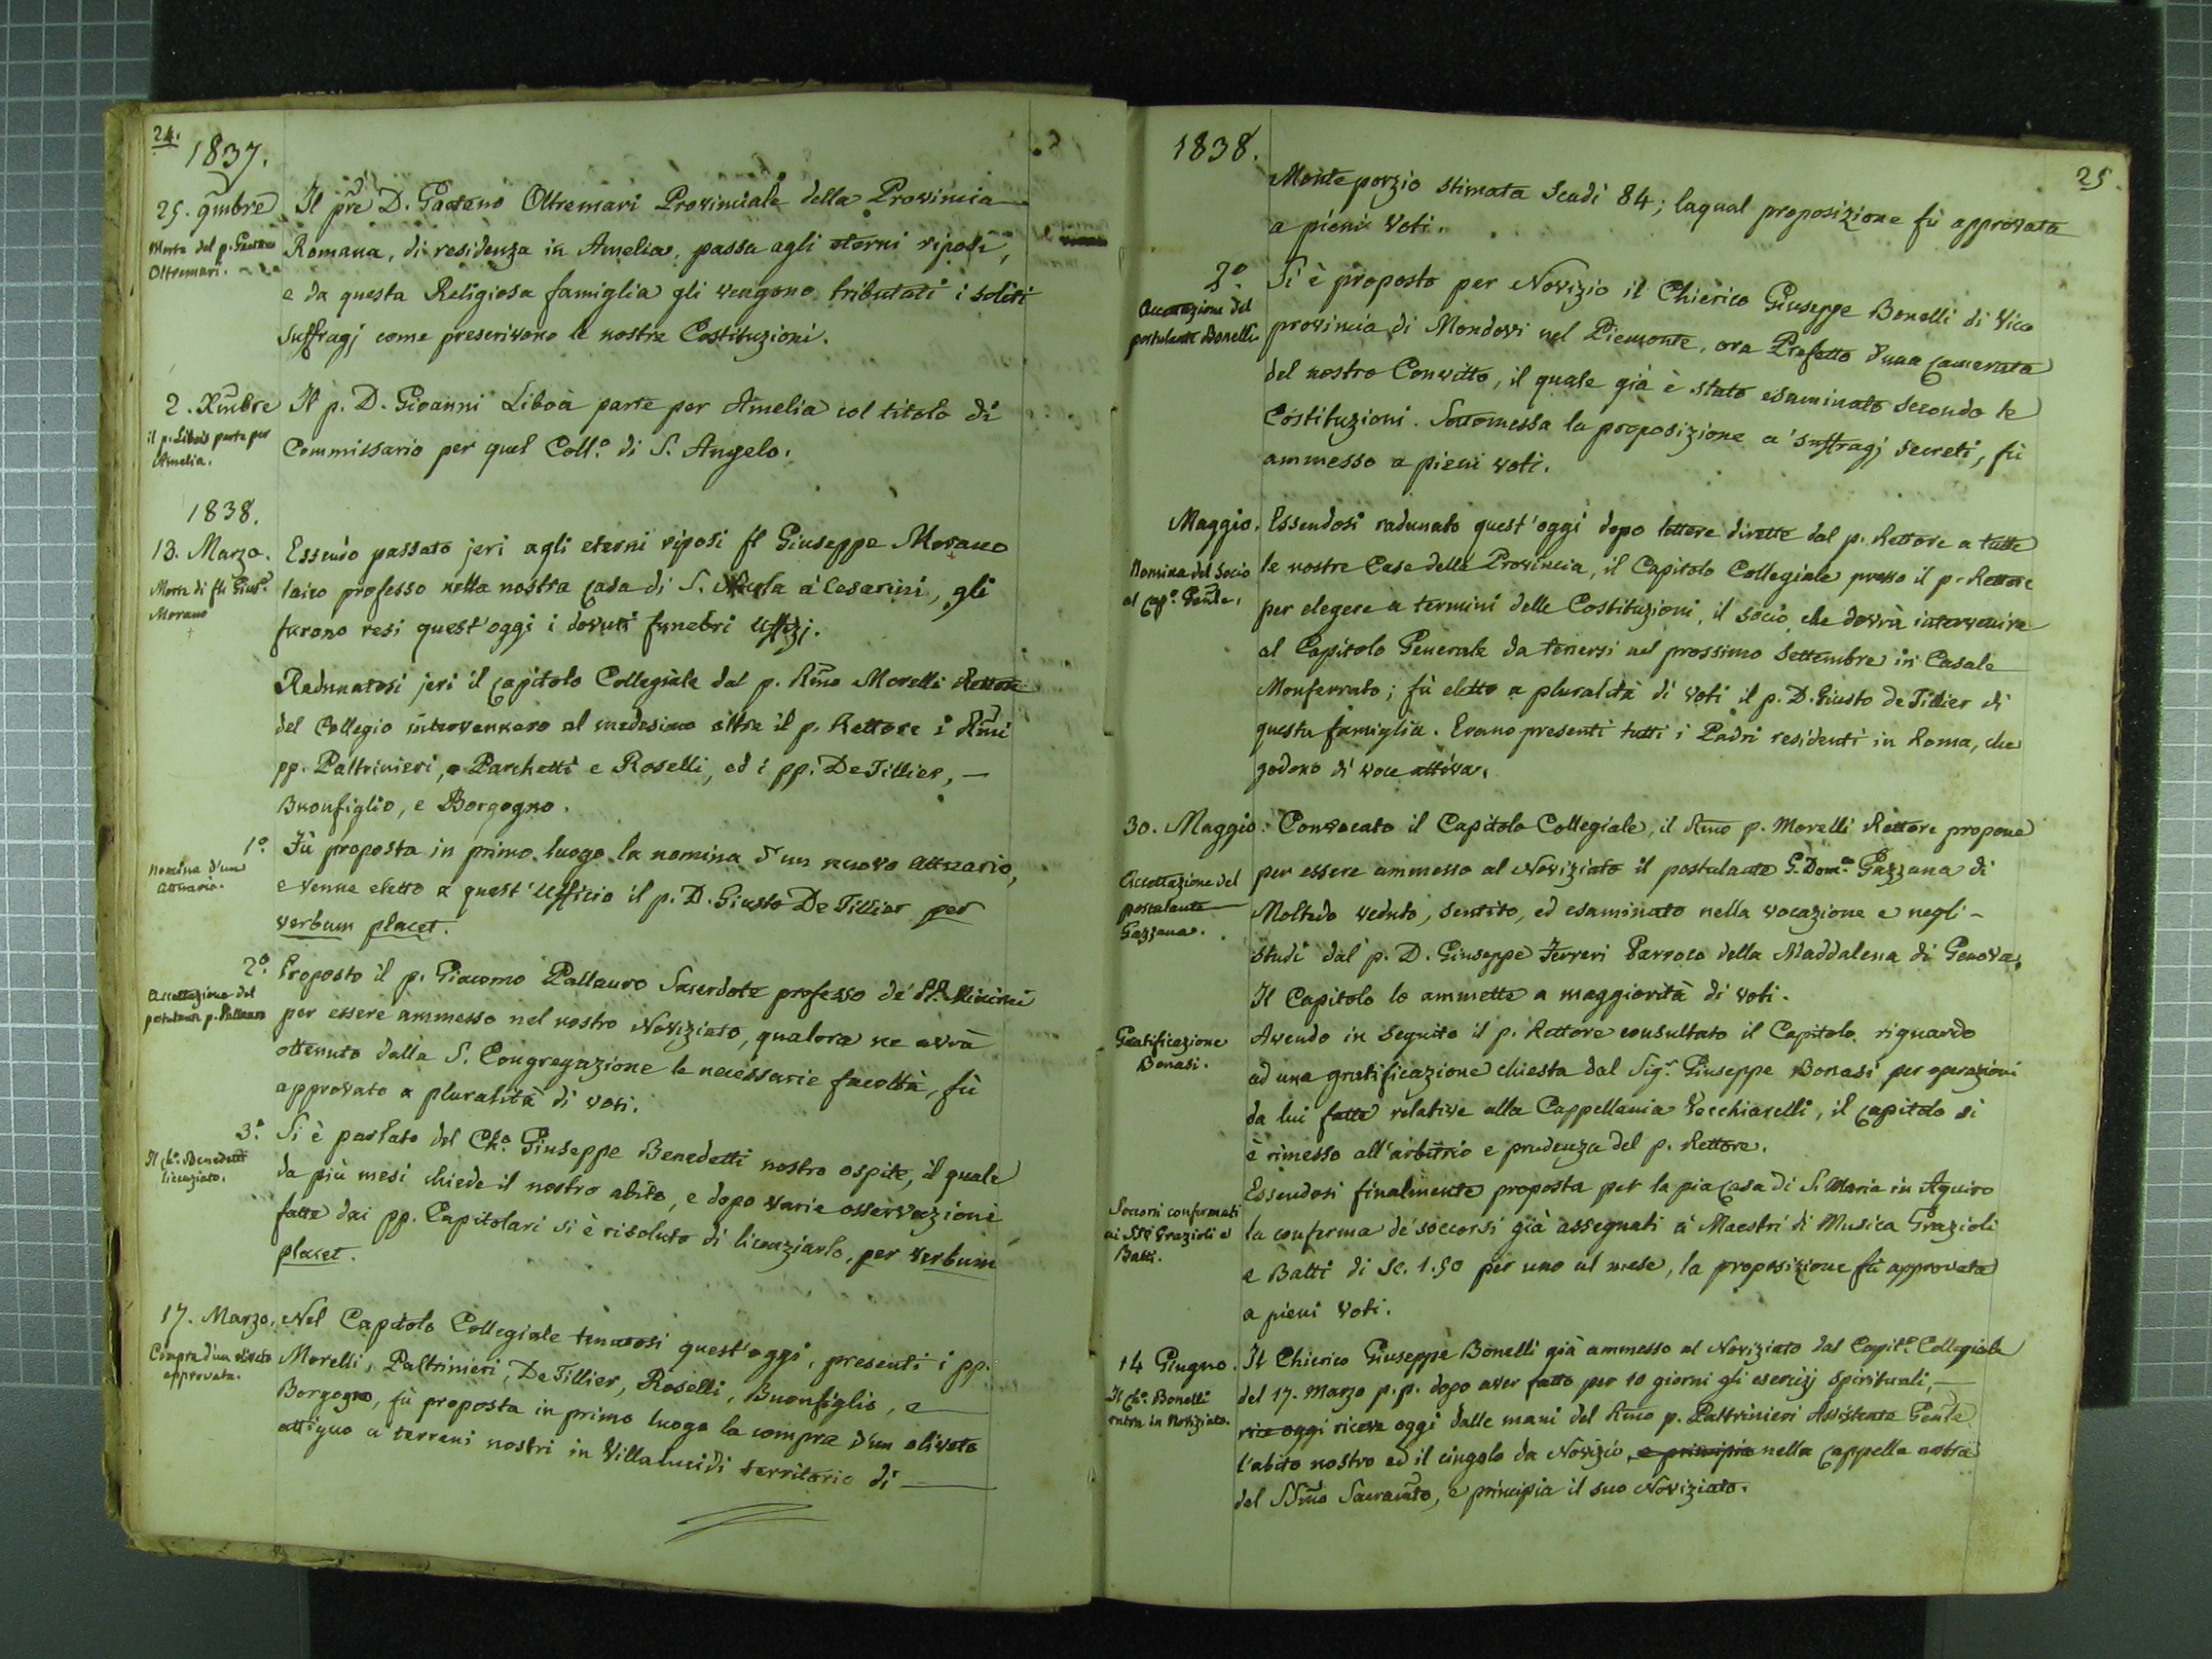 24.
1837.
25. 9mbre
Morte del p. Gaetano
Oltremari.
Il pre D. Gaetano Oltremari Provinciale della Provincia
Romana, di residenza in Amelia, passa agli eterni riposi,
e da questa Religiosa famiglia gli vengono tributati i soliti
suffragj come prescrivono le nostre Costituzioni.
2. Xmbre
il p. Libois parte per
Amelia.
Il p. D. Gioanni Liboà parte per Amelia col titolo di
Commissario per quel Coll.º di S. Angelo.
1838.
13. Marzo.
Morte di fr Gius.e
Morano
Essendo passato jeri agli eterni riposi fr Giuseppe Morano
laico professo nella nostra casa di S. Nicola a' Cesarini, gli
furono resi quest'oggi i dovuti funebri uffizj.
Radunatosi jeri il capitolo Collegiale dal p. Rmo Morelli Rettore
del Collegio intervennero al medesimo oltre il p. Rettore i Rmi
pp. Paltrinieri, Parchetti e Roselli, ed i pp. De Tillier, —
Buonfiglio, e Borgogno.
1º.
nomina d'un
attuario.
Fù proposta in primo luogo la nomina d'un nuovo attuario,
e venne eletto a quest'Ufficio il p. D. Giusto De Tillier per
verbum placet.
2º.
Accettazione del
postulante p. Pallauro
Proposto il p. Giacomo Pallauro Sacerdote professo de' PP. Minimi
per essere ammesso nel nostro Noviziato, qualora ne avrà
ottenuto dalla S. Congregazione le necessarie facoltà, fù
approvato a pluralità di voti.
3º.
Il Ch.º Benedetti
licenziato.
Si è parlato del Ch.º Giuseppe Benedetti nostro ospite, il quale
da più mesi chiede il nostro abito, e dopo varie osservazioni
fatte dai pp. Capitolari si è risoluto di licenziarlo, per verbum
placet.
17. Marzo.
Compra d'un oliveto
approvata.
Nel Capitolo Collegiale tenutosi quest'oggi, presenti i pp.
Morelli, Paltrinieri, De Tillier, Roselli, Buonfiglio, e —
Borgogno, fù proposta in primo luogo la compra d'un oliveto
attiguo a' terreni nostri in Villa lucidi territorio di —
1838.
25.
Monteporzio stimata Scudi 84; laqual proposizione fù approvata
a pieni voti.
2º.
Accettazione del
postulante Bonelli
Si è proposto per Novizio il Chierico Giuseppe Bonelli di Vico
provincia di Mondovi nel Piemonte, ora Prefetto d'una camerata
del nostro Convitto, il quale già è stato esaminato secondo le
Costituzioni. Sottomessa la proposizione a' suffragj secreti, fù
ammesso a pieni voti.
Maggio.
Nomina del Socio
al Cap.º Gen̄le.
Essendosi radunato quest'oggi dopo lettere dirette dal p. Rettore a tutte
le nostre Case della Provincia, il Capitolo Collegiale presso il p. Rettore
per elegere a termini delle Costituzioni, il socio che dovrà intervenire
al Capitolo Generale da tenersi nel prossimo Settembre in Casale
Monferrato; fù eletto a pluralità di voti il p. D. Giusto de Tillier di
questa famiglia. Erano presenti tutti i Padri residenti in Roma, che
godono di voce attiva.
30. Maggio.
Accettazione del
postulante
Gazzana.
Convocato il Capitolo Collegiale, il Rmo p. Morelli Rettore propone
per essere ammesso al Noviziato il postulante G. Dom.co Gazzana di
Moltedo veduto, sentito, ed esaminato nella vocazione e negli-
studi dal p. D. Giuseppe Ferreri Parroco della Maddalena di Genova.
Il Capitolo lo ammette a maggiorità di voti.
Gratificazione
Bonasi.
Avendo in seguito il p. Rettore consultato il Capitolo riguardo
ad una gratificazione chiesta dal Sig.r Giuseppe Bonasi per operazioni
da lui fatte relative alla Cappellania Vecchiarelli, il capitolo si
è rimesso all'arbitrio e prudenza del p. Rettore.
Soccorsi confermati
ai SSri Grazioli e
Batti.
Essendosi finalmente proposta per la pia casa di S. Maria in Aquiro
la conferma de' soccorsi già assegnati a' Maestri di Musica Grazioli
e Batti di Sc. 1.50 per uno al mese, la proposizione fù approvata
a pieni voti.
14 Giugno.
Il Ch.º Bonelli
entra in Noviziato.
Il Chierico Giuseppe Bonelli già ammesso al Noviziato dal Capit.º Collegiale
del 17. Marzo p.p. dopo aver fatto per 10 giorni gli esercizj spirituali, —
rice oggi riceve oggi dalle mani del Rmo p. Paltrinieri Assistente Gen̄le
l'abito nostro ed il cingolo da Novizio, e principia nella cappella nostra
del SSmo Sacramto, e principia il suo Noviziato.